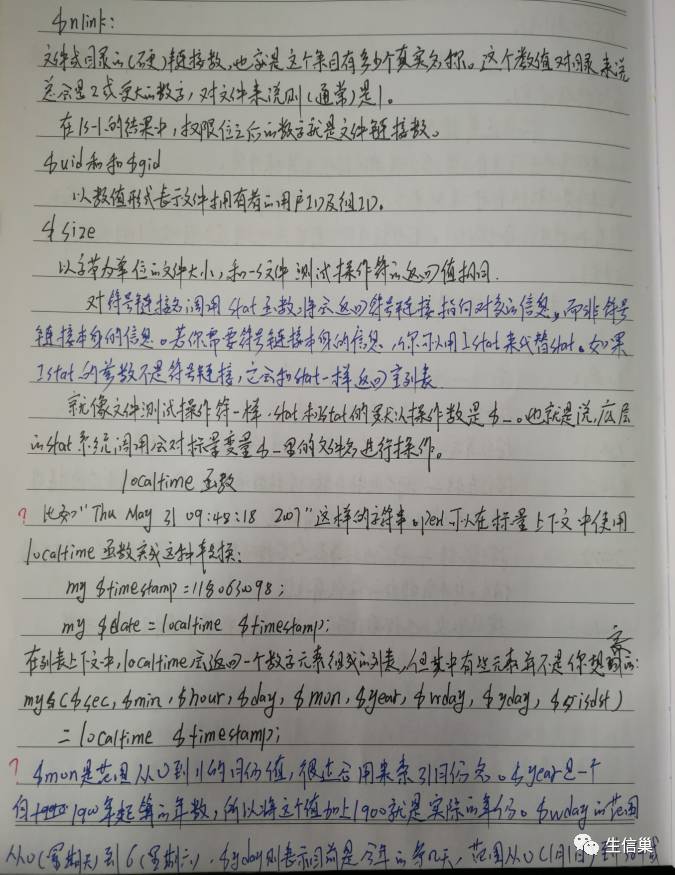 $nlink:
文件或目录的(硬)链接数,也就是这个条目有多少个真实名称。这个数值对目录来说
总会是2或更大的数字,对文件来说则(通常)是1。
在ls-l的结果中,权限位之后的数字就是文件链接数。
$uid和和$gid
以数值形式表示文件拥有者的用户ID及组ID。
$size
以字节为单位的文件大小,和-s文件测试操作符的返回值相同.
对符号链接名调用stat函数将会返回符号链接指向对象的信息,而非符号
链接本身的信息。若你需要符号链接本身的信息,你可以用lstat来代替stat。如果
lstat的参数不是符号链接,它会和stat一样返回空列表
就像文件测试操作符一样,stat和lstat的默认操作数是$_。也就是说,底层
的stat系统调用会对标量变量$_里的文件名进行操作。
localtime函数
? 比如"Thu May 31 09:48:18 2007"这样的字符串。perl可以在标量上下文中使用
localtime函数完成这种转换:
my $timestamp=1180630098;
my $date = localtime $timestamp;
在列表上下文中,localtime会返回一个数字元素组成的列表,但其中有些元素并不是你想要的:
my($sec, $min, $hour, $day, $mon, $year, $wday, $yday, $isdst)
= localtime $timestamp;
? $mon是范围从0到11的月份值,很适合用来索引月份名。$year是一个
自1900年起算的年数,所以将这个值加上1900就是实际的年份。$wday的范围
从0(星期天)到6(星期六),$yday则表示目前是今年的第几天,范围从0(1月1日)到
生信巢